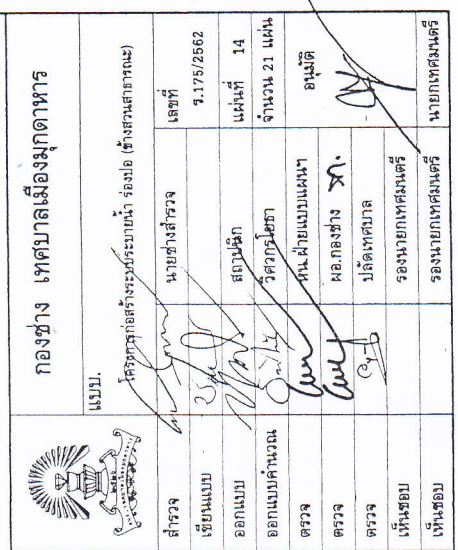 กองช่าง เทศบาลเมืองมุกดาหาร
แบบ.
โครงการก่อสร้างระบบระบายน้ำ ร่องปอ (ข้างสวนสาธารณะ)
สำรวจ นายช่างสำรวจ เลขที่
เขียนแบบ ร.175/2562
ออกแบบ สถาปนิก แผ่นที่ 14
ออกแบบคำนวณ วิศวกรโยธา จำนวน 21 แผ่น
ตรวจ หน.ฝ่ายแบบแผนฯ อนุมัติ
ตรวจ ผอ.กองช่าง
ตรวจ ปลัดเทศบาล
เห็นชอบ รองนายกเทศมนตรี
เห็นชอบ รองนายกเทศมนตรี นายกเทศมนตรี